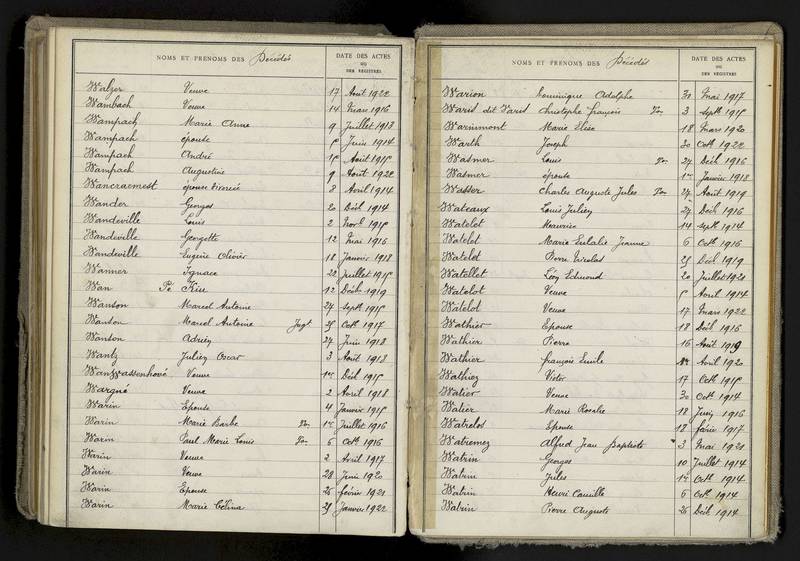 NOMS ET PRENOMS DES Décédés DATE DES ACTES
OU
DES REGISTRES
Walzer Veuve 17 Août 1922
Wambach Veuve 14 Mars 1916
Wampach Marie Anne 9 Juillet 1918
Wampach épouse Juin 1914
Wampach André Août 1915
Wampach Augustine 9 Août 1922
Wancraemest épouse 8 Avril 1914
Wander Georges 20 Déc 1914
Wandeville Louis 2 Nov 1915
Wandeville Georgette 12 Mai 1916
Wandeville Eugène Olivier 18 Janvier 1918
Wanner Ignace 22 Juillet 1915
Wan Pe Kiu 12 Déc 1919
Wanson Marcel Antoine 24 Sept 1915
Wanson Marcel Antoine Jugt 25 Oct 1917
Wanson Adrien 27 Juin 1918
Wantz Julien Oscar 3 Août 1918
Wanwassenhové Veuve Déc 1915
Wargné Veuve 2 Avril 1918
Warin Epouse 4 Janvier 1915
Warin Marie Barbe Juillet 1916
Warin Paul Marie Louis 6 Oct 1916
Warin Veuve 2 Avril 1917
Warin Veuve 28 Juin 1920
Warin Epouse 26 février 1921
Warin Marie Célina 25 Janvier 1922
NOMS ET PRENOMS DES Décédés DATE DES ACTES
OU
DES REGISTRES
Warion Dominique Adolphe Mai 1917
Waris dit Varis Christophe françois 3 Sept 1915
Warnimont Marie Elise 18 Mars 1920
Warth Joseph 20 Oct 1922
Wasmer Louis 27 Déc 1916
Wasmer épouse Janvier 1918
Wasser Charles Auguste Jules 27 Août 1919
Wateaux Louis Julien 27 Déc 1916
Watelet Maurice 14 Sept 1914
Watelet Marie Eulalie Jeanne 6 Oct 1916
Watelet Pierre Nicolas 25 Déc 1919
Watellet Léon Edmond 20 Juillet 1921
Watelot Veuve Avril 1914
Watelot Veuve 17 Mars 1922
Wathier Epouse 18 Déc 1916
Wathier Pierre 16 Août 1919
Wathier françois Emile Avril 1920
Wathiez Victor 17 Oct 1915
Watier Veuve 30 Oct 1914
Watier Marie Rosalie 18 Juin 1916
Watrelos Epouse 18 févier 1917
Watremez Alfred Jean Baptiste 3 Mai 1921
Watrin Georges 10 Juillet 1914
Watrin Jules Oct 1914
Watrin Henri Camille 6 Oct 1914
Watrin Pierre Auguste 26 Déc 1914